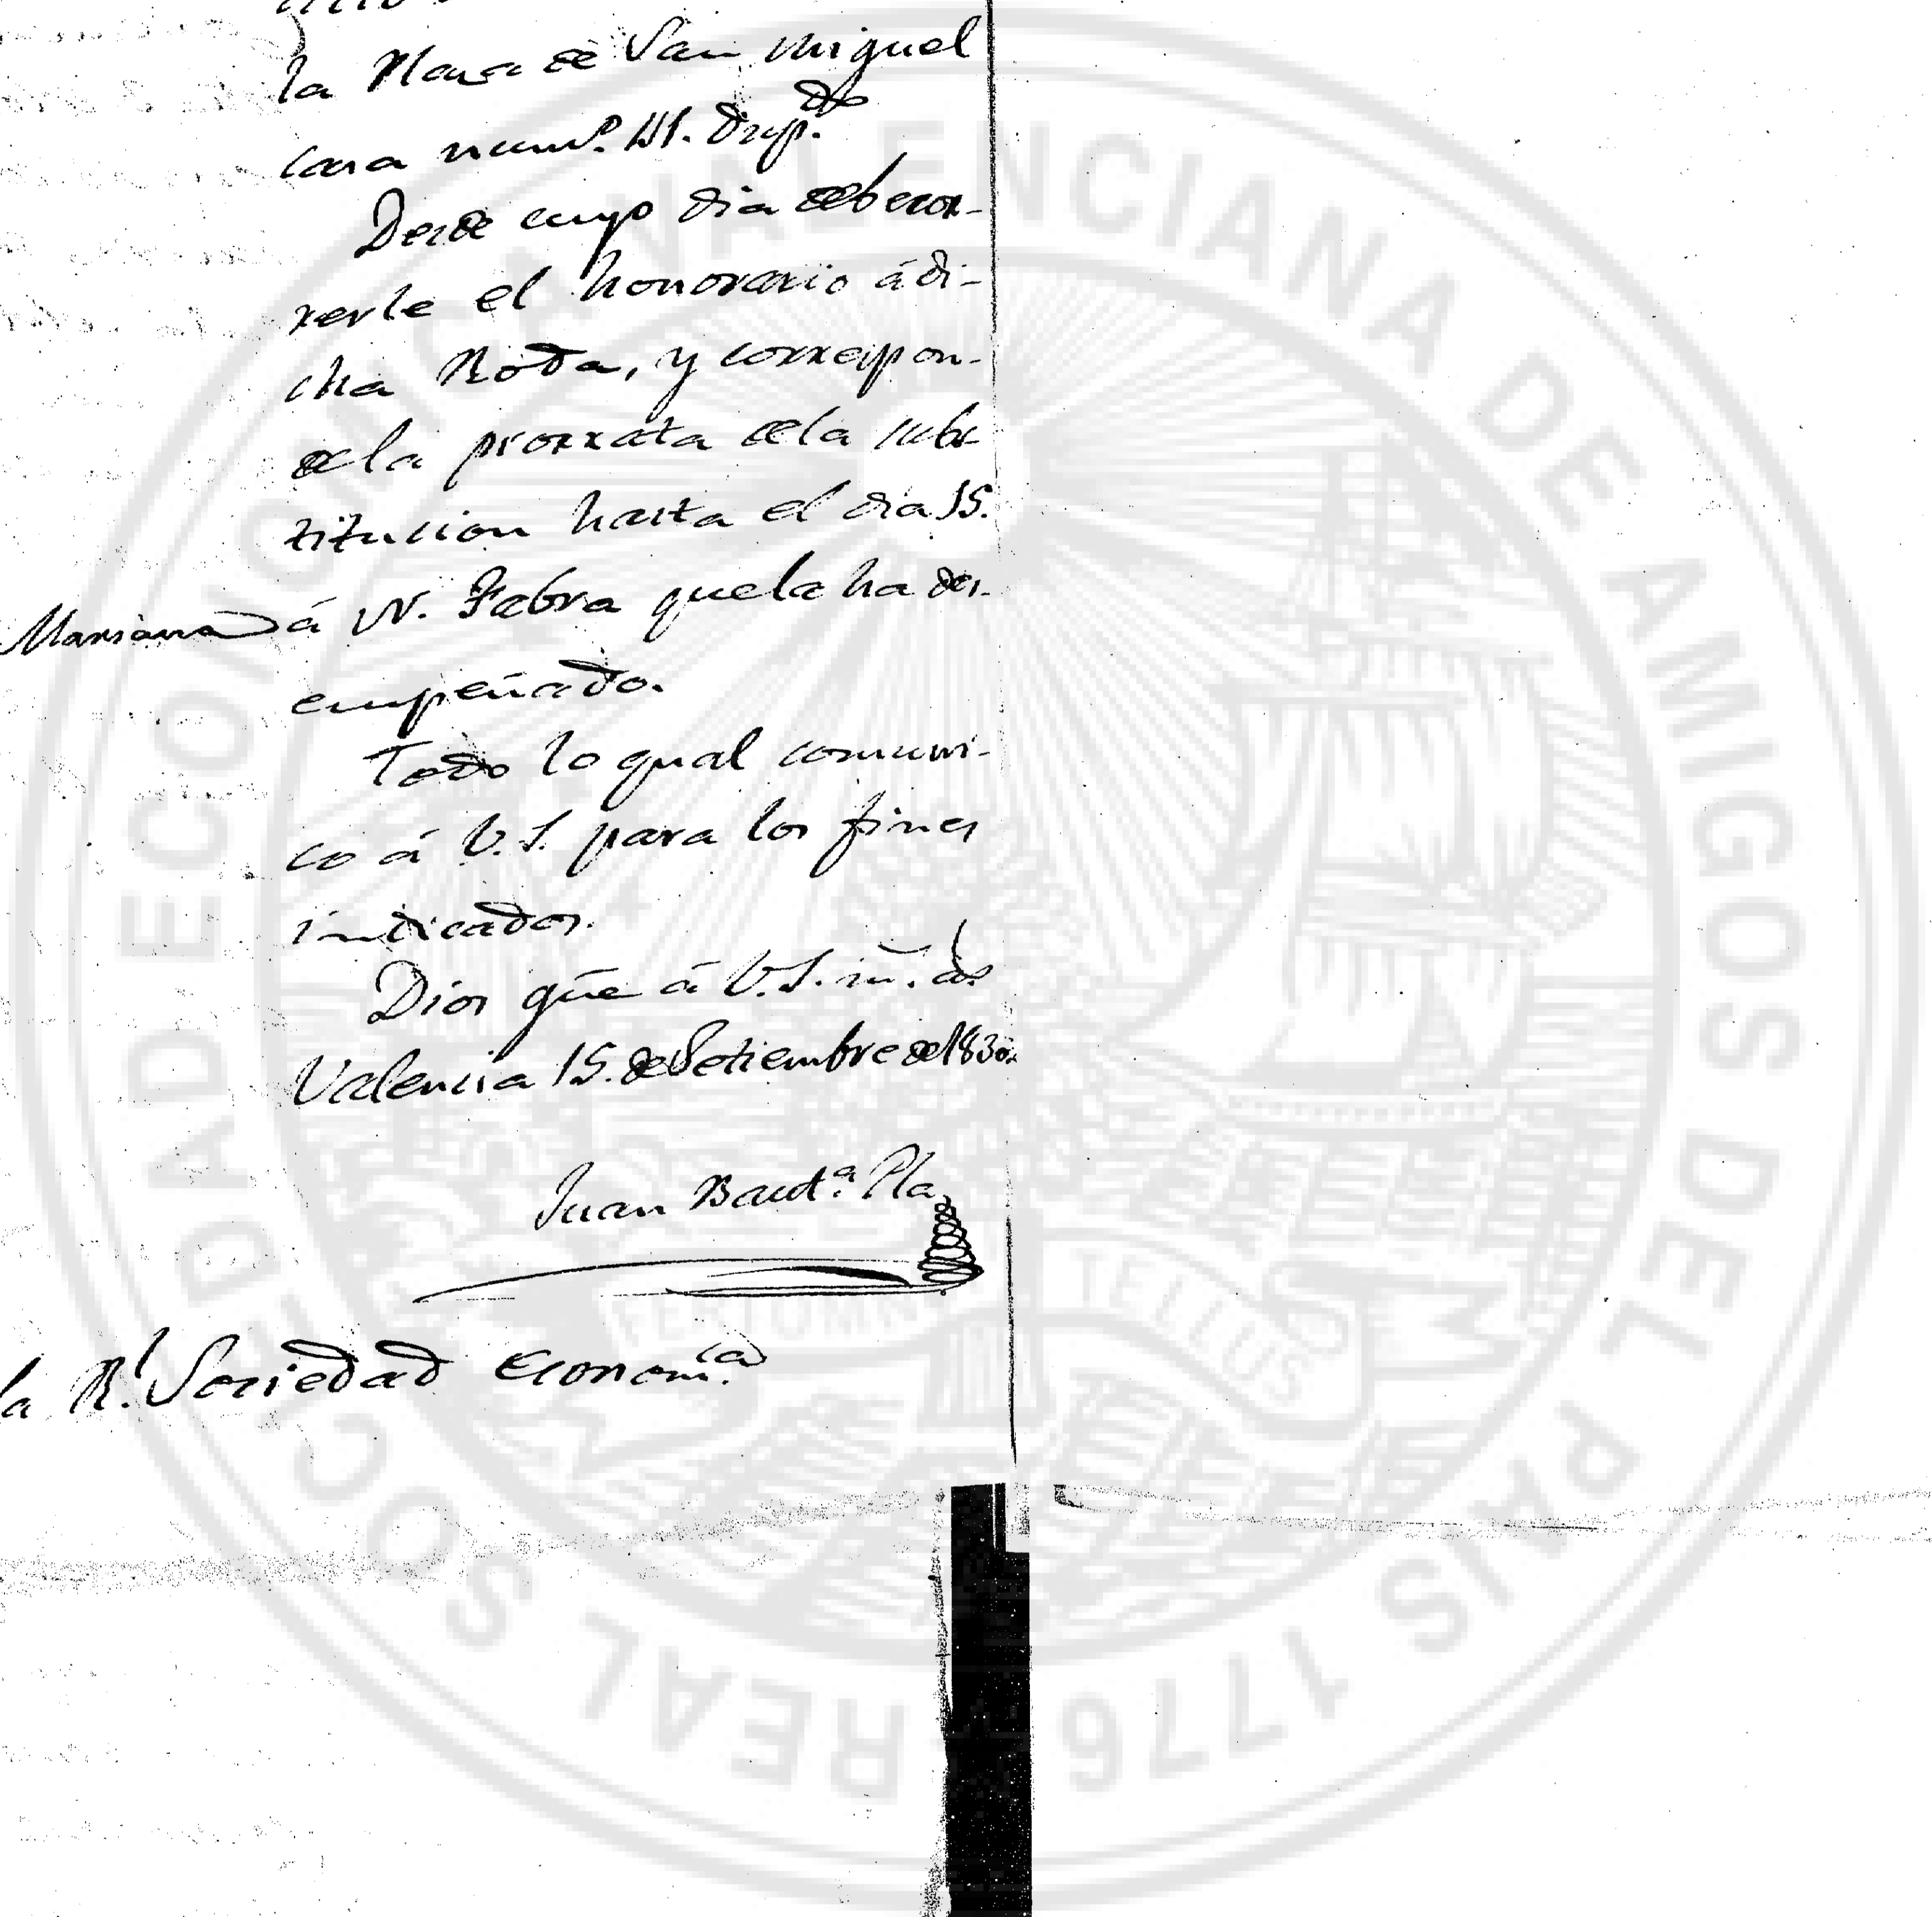 la Plaza de San Miguel
casa num.º 41. dup.do
Desde cuyo dia debe cor-
rerle el honorario á di-
cha Roda, y correspon-
de la prorrata dela subs-
titucion hasta el dia 15.
Mariana á N. Fabra quela ha des-
empeñado.
Todo lo qual comuni-
co á V.S. para los fines
indicados.
Dios güe á V.S. m.s a.s
Valencia 15. de Setiembre de 1830.
Juan Baut.a Pla
la R.l Sociedad Econom.ca
REAL SOCIEDAD ECONOMICA VALENCIANA DE AMIGOS DEL PAIS 1776